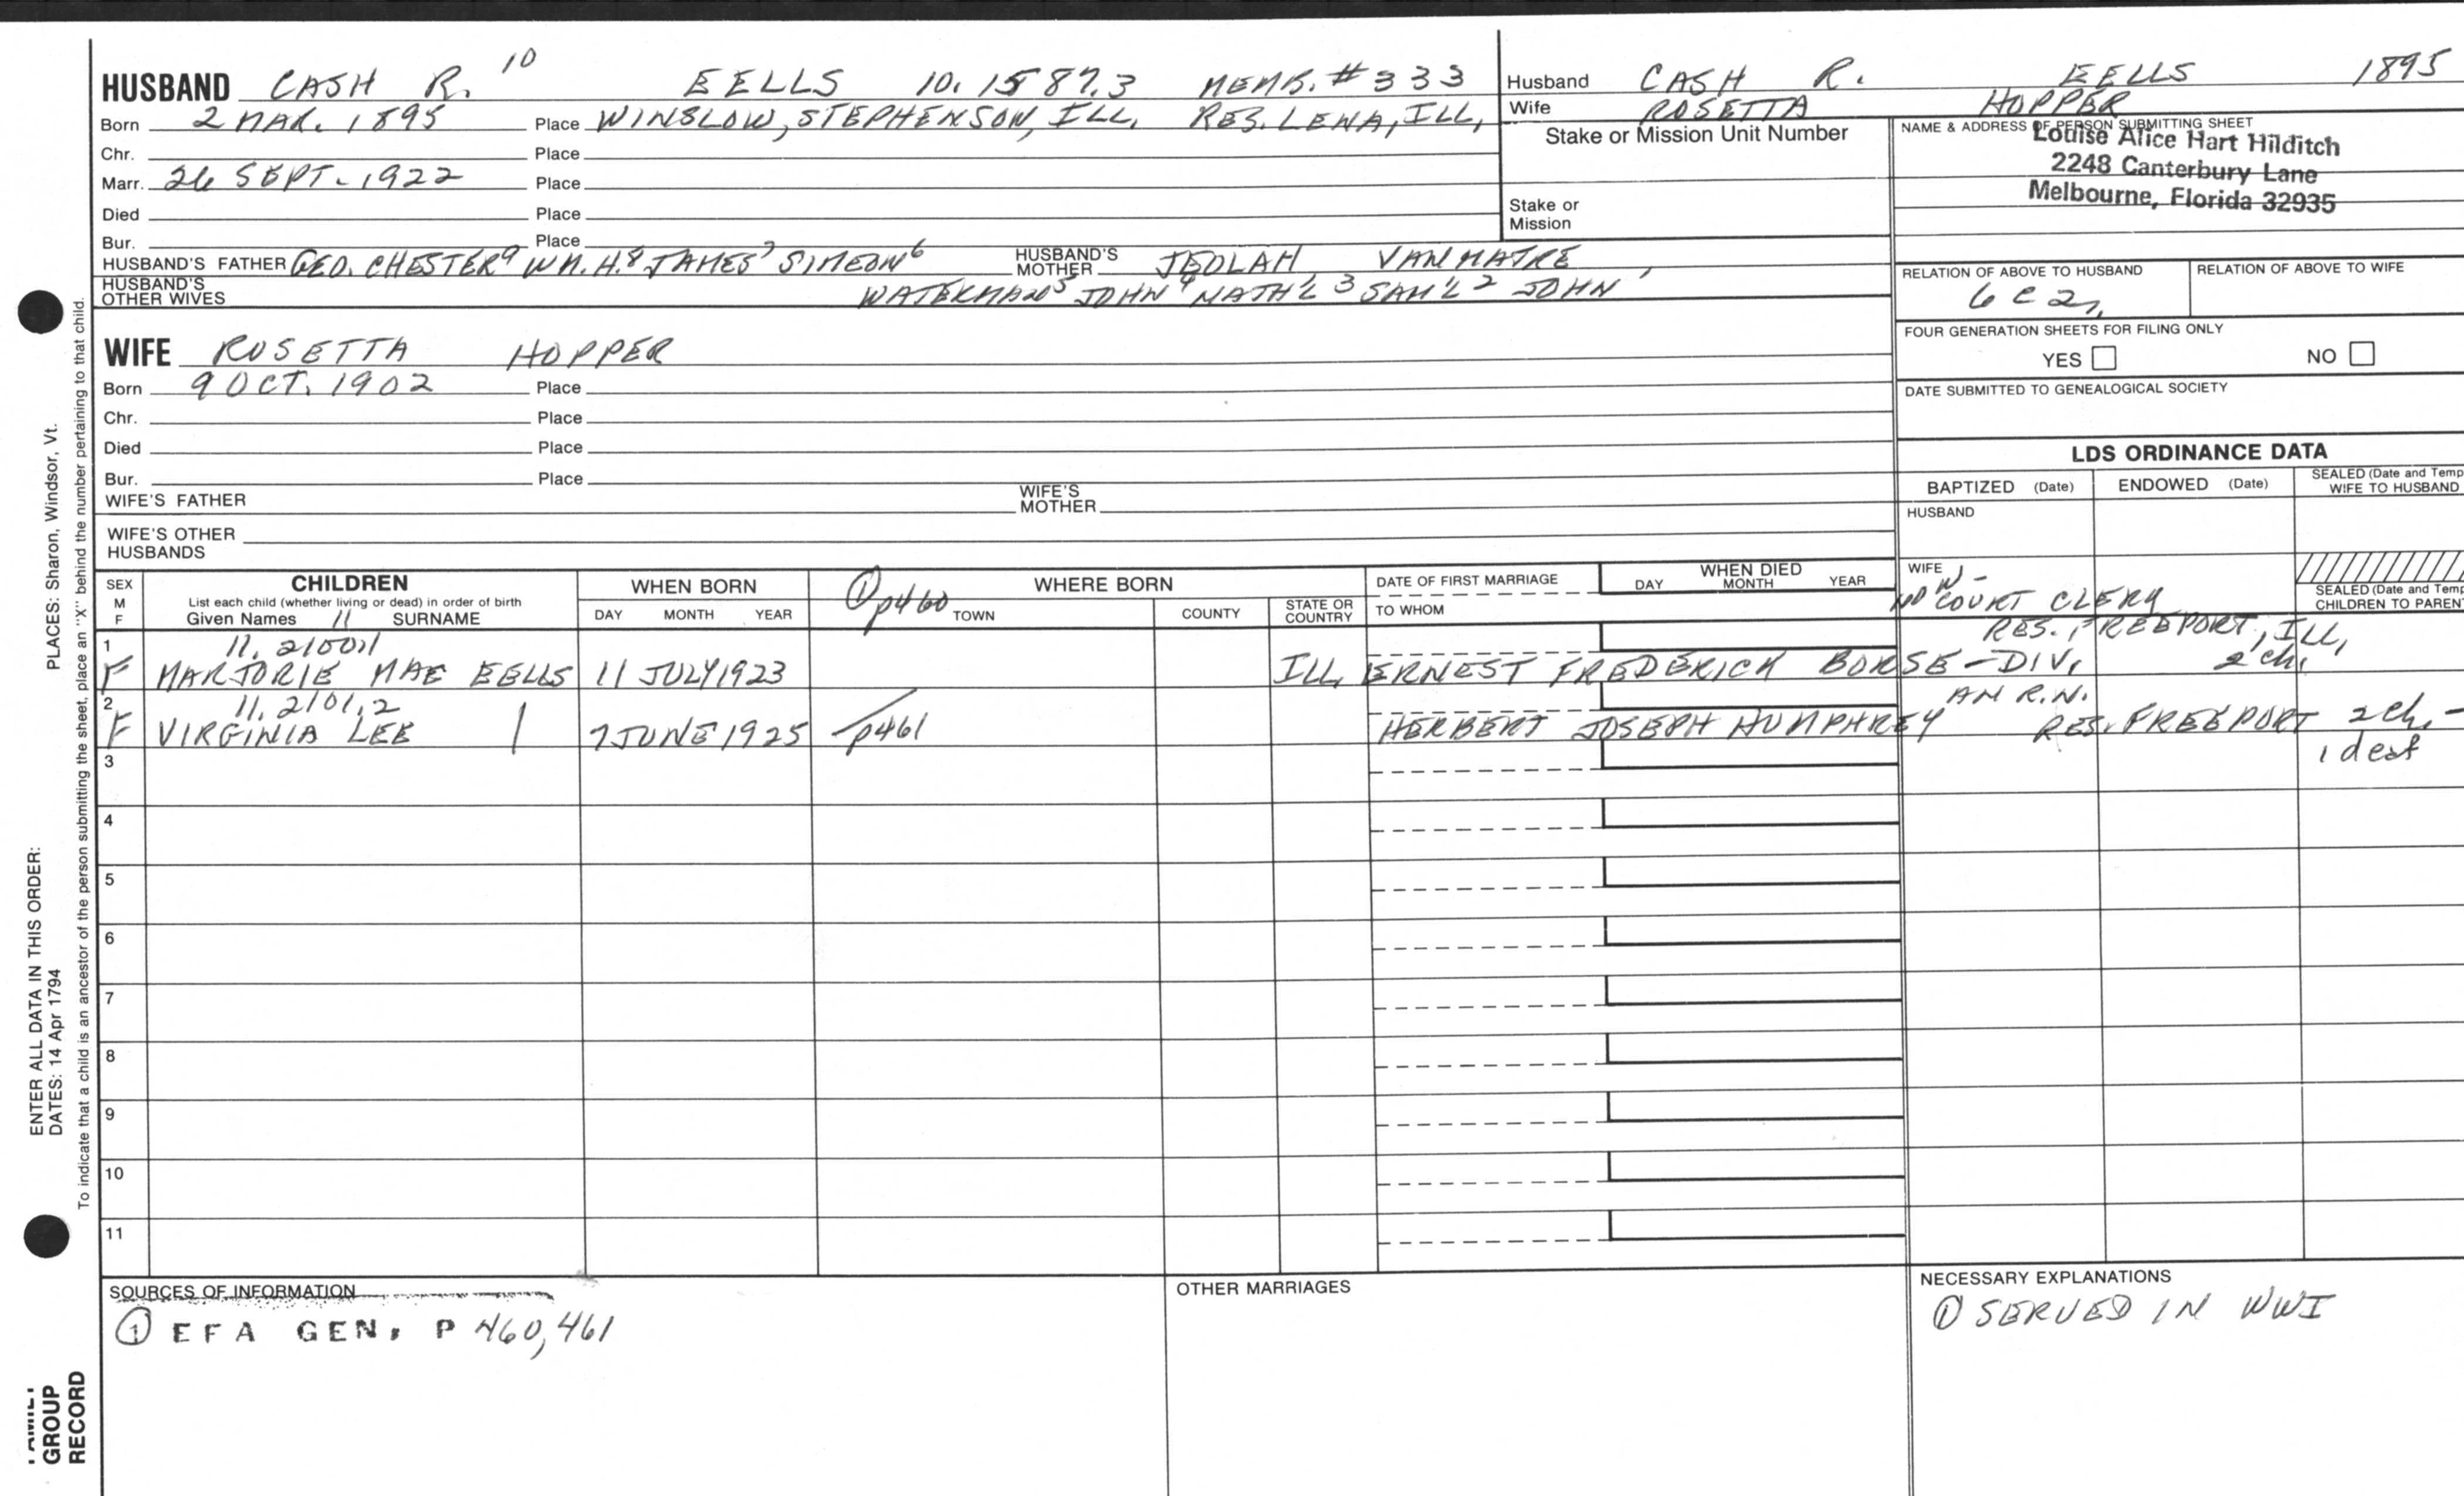 HUSBAND CASH R. 10 EELLS 10.1587.3 MEMB. #333
Born 2 MAR. 1895 Place WINSLOW, STEPHENSON, ILL. RES. LENA, ILL,
Chr. Place
Marr. 26 SEPT. 1922 Place
Died Place
Bur. Place
HUSBAND'S FATHER GEO. CHESTER9 WM. H.8 JAMES7 SIMEON6 HUSBAND'S MOTHER JEOLAH VAN MATRE
HUSBAND'S OTHER WIVES WATERMAN5 JOHN4 NATH'L3 SAM'L2 JOHN'
Husband CASH R. EELLS 1895
Wife ROSETTA HOPPER
Stake or Mission Unit Number
Stake or
Mission
NAME & ADDRESS OF PERSON SUBMITTING SHEET
Louise Alice Hart Hilditch
2248 Canterbury Lane
Melbourne, Florida 32935
RELATION OF ABOVE TO HUSBAND RELATION OF ABOVE TO WIFE
6 C 2r
FOUR GENERATION SHEETS FOR FILING ONLY
YES NO
DATE SUBMITTED TO GENEALOGICAL SOCIETY
WIFE ROSETTA HOPPER
Born 9 OCT. 1902 Place
Chr. Place
Died Place
Bur. Place
WIFE'S FATHER WIFE'S MOTHER
WIFE'S OTHER
HUSBANDS
LDS ORDINANCE DATA
BAPTIZED (Date) ENDOWED (Date) SEALED (Date and Temp
WIFE TO HUSBAND
HUSBAND
WIFE
SEALED (Date and Temp
CHILDREN TO PARENT
SEX
M
F
CHILDREN
List each child (whether living or dead) in order of birth
Given Names 11 SURNAME
WHEN BORN
DAY MONTH YEAR
① p460
WHERE BORN
TOWN COUNTY STATE OR COUNTRY
DATE OF FIRST MARRIAGE
TO WHOM
WHEN DIED
DAY MONTH YEAR
COURT CLERK
RES. FREEPORT, ILL,
1 11.2100.1
F MARJORIE MAE EELLS 11 JULY 1923 ILL, ERNEST FREDERICK BORSE - DIV, 2 ch,
2 11.2101.2 AM R.N.
F VIRGINIA LEE | 7 JUNE 1925 p461 HERBERT JOSEPH HUMPHREY RES. FREEPORT 2 ch, -
1 deaf
3
4
5
6
7
8
9
10
11
SOURCES OF INFORMATION
① EFA GEN, P 460, 461
OTHER MARRIAGES
NECESSARY EXPLANATIONS
① SERVED IN WWI
ENTER ALL DATA IN THIS ORDER:
DATES: 14 Apr 1794
PLACES: Sharon, Windsor, Vt.
To indicate that a child is an ancestor of the person submitting the sheet, place an "X" behind the number pertaining to that child.
FAMILY
GROUP
RECORD